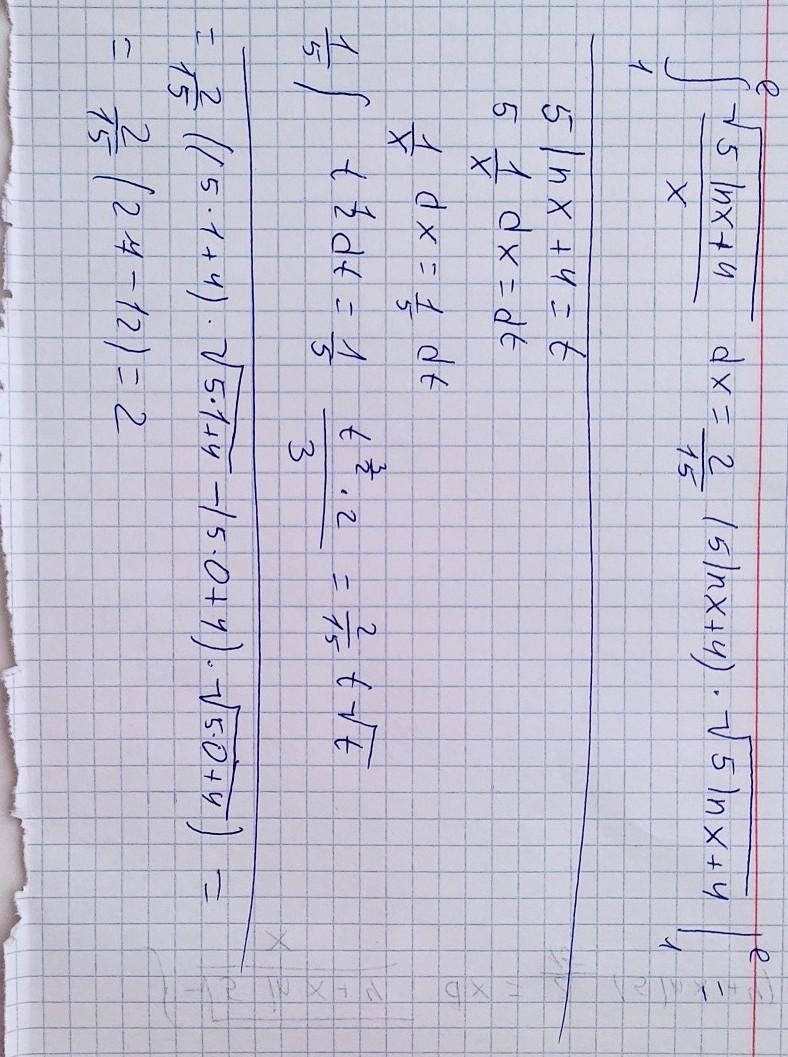 ∫₁ᵉ √(5 lnx+4) / x dx = 2/15 (5lnx+4) · √(5 lnx+4) |₁ᵉ
5 lnx + 4 = t
5 1/x dx = dt
1/x dx = 1/5 dt
1/5 ∫ t^(1/2) dt = 1/5 (t^(3/2) · 2)/3 = 2/15 t√t
= 2/15 ((5·1+4) · √(5·1+4) - (5·0+4) · √(5·0+4)) =
= 2/15 (24-12) = 2